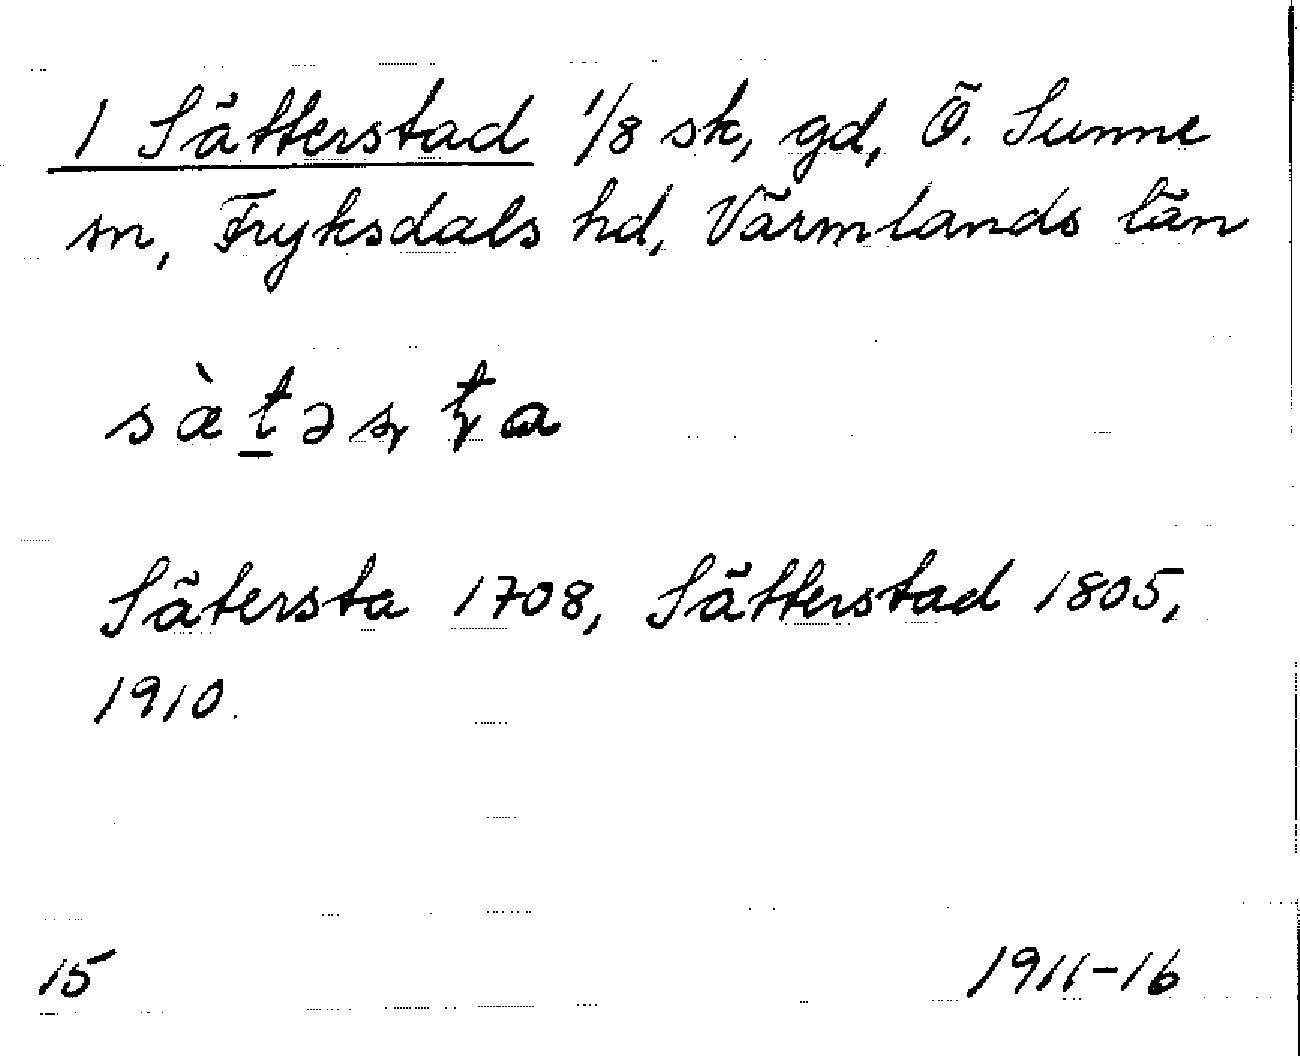 1 Sätterstad 1/8 sk, gd, Ö. Sunne
sn, Fryksdals hd, Värmlands län
sæ̀t̠əʂʈa
Sätersta 1708, Sätterstad 1805,
1910.
15 1911-16